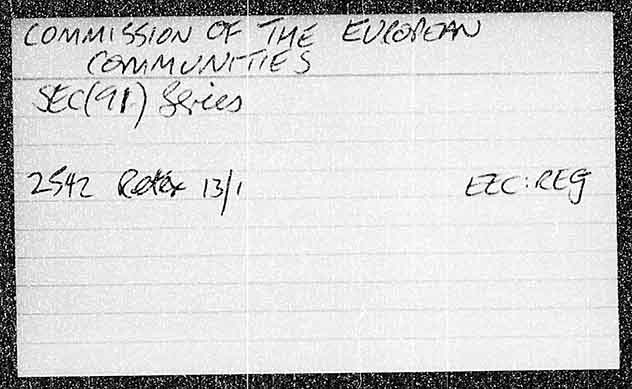 COMMISSION OF THE EUROPEAN
COMMUNITIES
SEC(91) Series
2542 13/1 EZC:REG